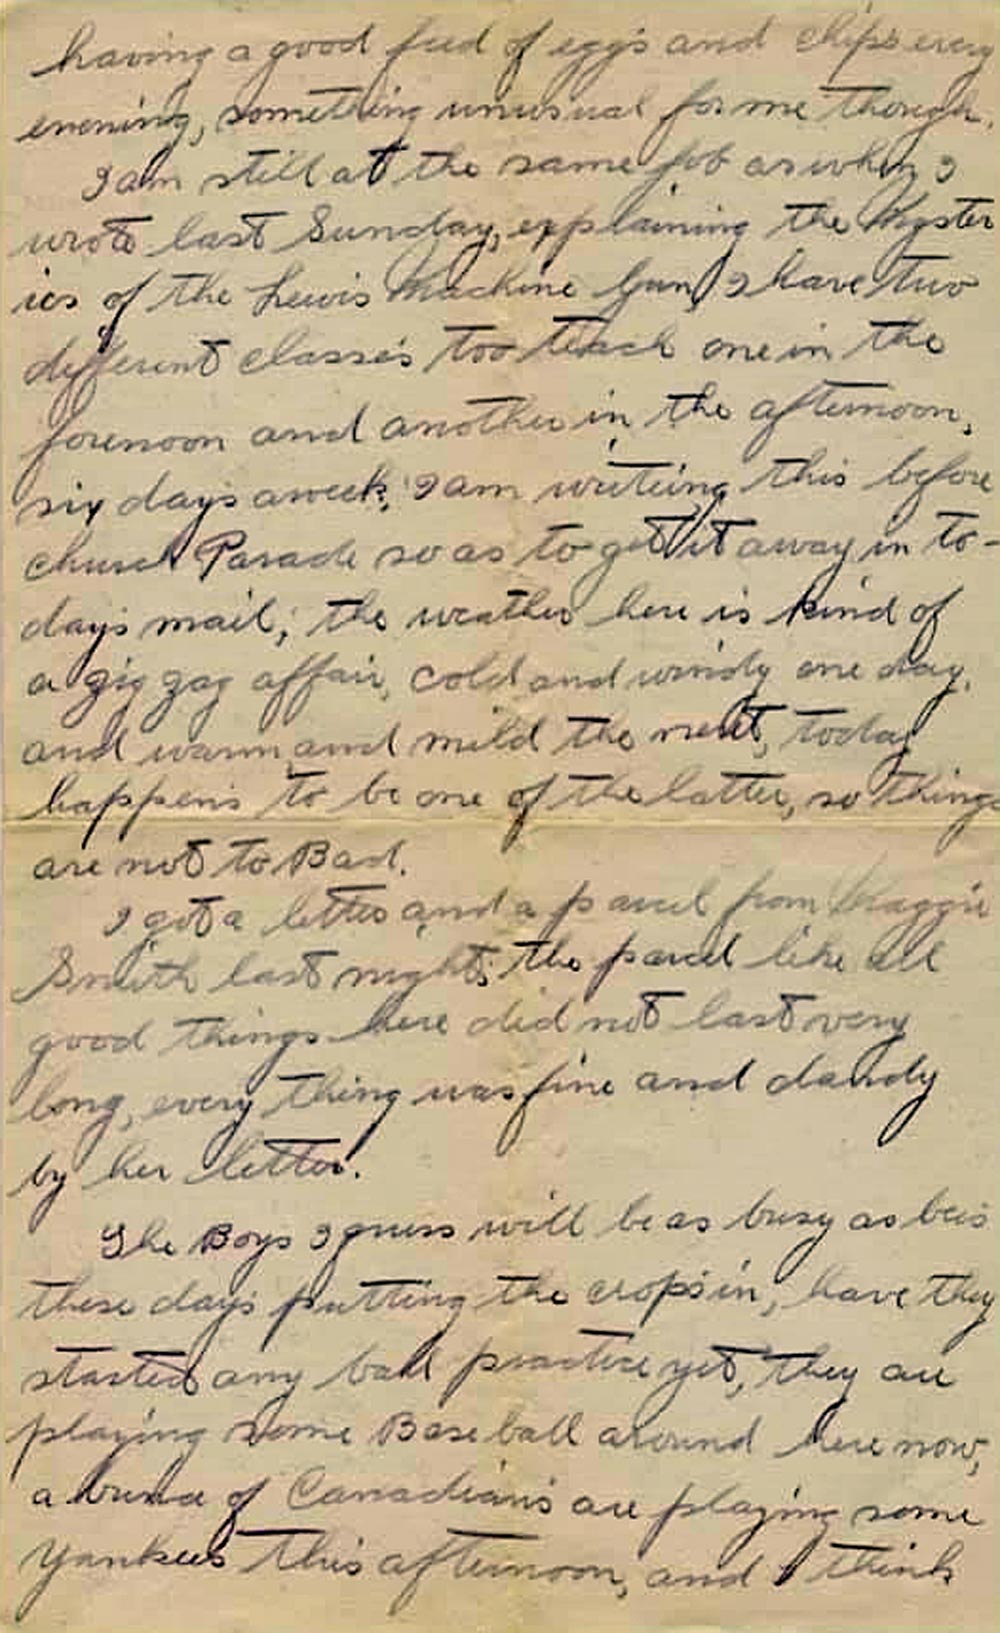 having a good feed of eggs and chips every
evening, something unusual for me though.
I am still at the same job as when I
wrote last Sunday, explaining the Myster
ies of the Lewis Machine Gun, I have two
different classes too teach one in the
forenoon and another in the afternoon,
six days a week, I am writeing this before
church Parade so as to get it away in to-
days mail; the weather here is kind of
a zig zag affair, cold and windy one day,
and warm and mild the next, today
happens to be one of the latter, so things
are not to Bad.
I got a letter and a parcel from Maggie
Smith last night, the parcel like all
good things here did not last very
long, every thing was fine and dandy
by her letter.
The Boys I guess will be as busy as bees
these days putting the crops in, have they
started any ball practice yet, they are
playing some Base ball around here now,
a bunch of Canadians are playing some
Yankees this afternoon, and I think